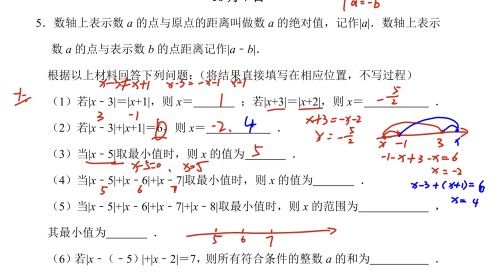 |a=-b
5．数轴上表示数 a 的点与原点的距离叫做数 a 的绝对值，记作|a|．数轴上表示
数 a 的点与表示数 b 的点距离记作|a﹣b|．
根据以上材料回答下列问题：（将结果直接填写在相应位置，不写过程）
x-3=x+1 x-3=-x-1 x=1
（1）若|x﹣3|=|x+1|，则 x= 1 ；若|x+3|=|x+2|，则 x= -5/2 ．
3 -1 x+3=-x-2
（2）若|x﹣3|+|x+1|=6，则 x= -2、4 ． x=-5/2
x -1 3 x
（3）当|x﹣5|取最小值时，则 x 的值为 5 ． -1-x+3-x=6
x-5=0 x=5 x=-2
（4）当|x﹣5|+|x﹣6|+|x﹣7|取最小值时，则 x 的值为 ． x-3+(x+1)=6
5 6 7 x=4
（5）当|x﹣5|+|x﹣6|+|x﹣7|+|x﹣8|取最小值时，则 x 的范围为 ，
其最小值为 ．
5 6 7
（6）若|x﹣（﹣5）|+|x﹣2|=7，则所有符合条件的整数 a 的和为 ．